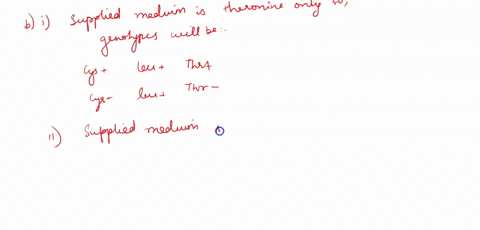 b) i) Supplied medium is theronine only so,
genotypes will be:-
Cys+ leu+ Thr+
Cys- leu+ Thr-
ii) Supplied medium